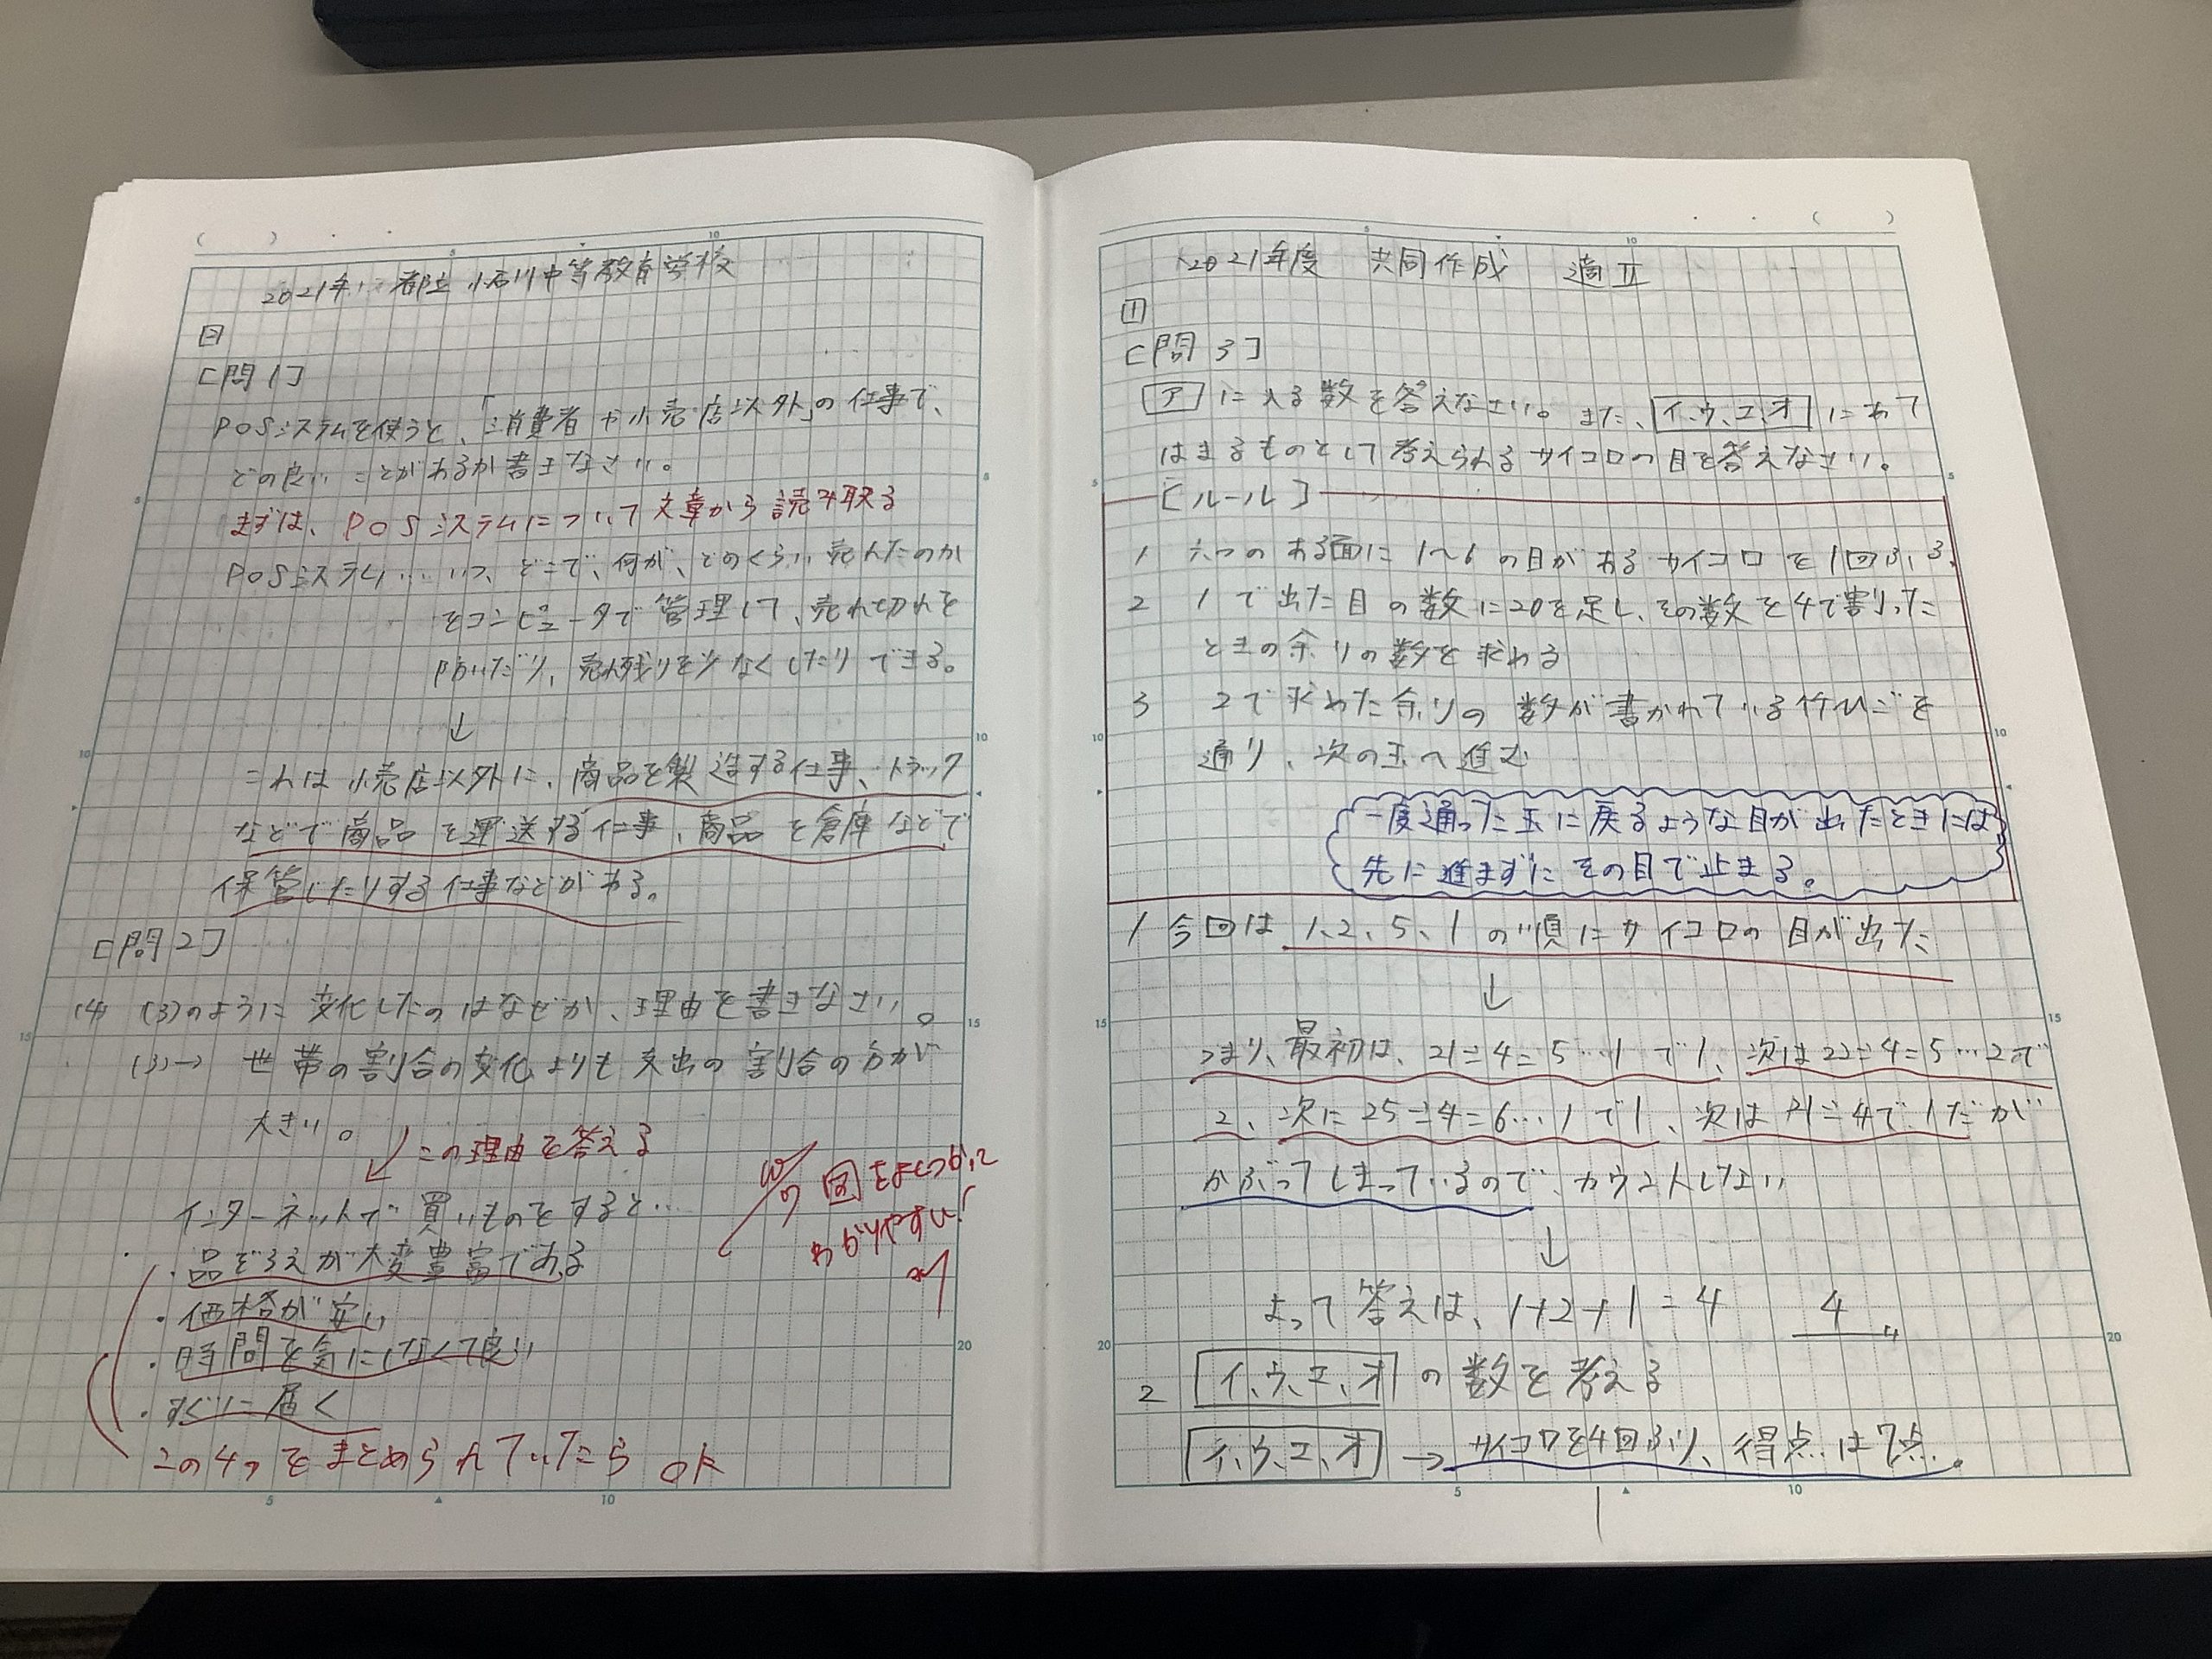 2021年 都立小石川中等教育学校
[問1]
POSシステムを使うと、「消費者や小売店以外」の仕事で、
どの良いことがあるか書きなさい。
まずは、POSシステムについて文章から読み取る
POSシステム… いつ、どこで、何が、どのくらい売れたのか
をコンピュータで管理して、売れ切れを
防いだり、売れ残りを少なくしたりできる。
↓
これは小売店以外に、商品を製造する仕事、トラック
などで商品を運送する仕事、商品を倉庫などで
保管したりする仕事などがある。
[問2]
(4) (3)のように変化したのはなぜか、理由を書きなさい。
(3)→ 世帯の割合の変化よりも支出の割合の方が
大きい。
この理由を答える
インターネットで買いものをすると…
・品ぞろえが大変豊富である
・価格が安い
・時間を気にしなくて良い
・すぐに届く
この4つをまとめられていたらOK
図をよくつかって
わかりやすい!
2021年度 共同作成 適Ⅱ
1
[問3]
アに入る数を答えなさい。また、イ、ウ、エ、オにあて
はまるものとして考えられるサイコロの目を答えなさい。
[ルール]
1 六つのある面に1〜6の目があるサイコロを1回ふる。
2 1で出た目の数に20を足し、その数を4で割った
ときの余りの数を求める
3 2で求めた余りの数が書かれている竹ひごを
通り、次の玉へ進む
一度通った玉に戻るような目が出たときには、
先に進まずにその目で止まる。
1 今回は1、2、5、1の順にサイコロの目が出た
↓
つまり、最初は、21÷4=5…1で1、次は22÷4=5…2で
2、次に25÷4=6…1で1、次は21÷4で1だが
かぶってしまっているので、カウントしない
↓
よって答えは、1+2+1=4 4
2 イ、ウ、エ、オの数を考える
イ、ウ、エ、オ→サイコロを4回ふり、得点は7点。